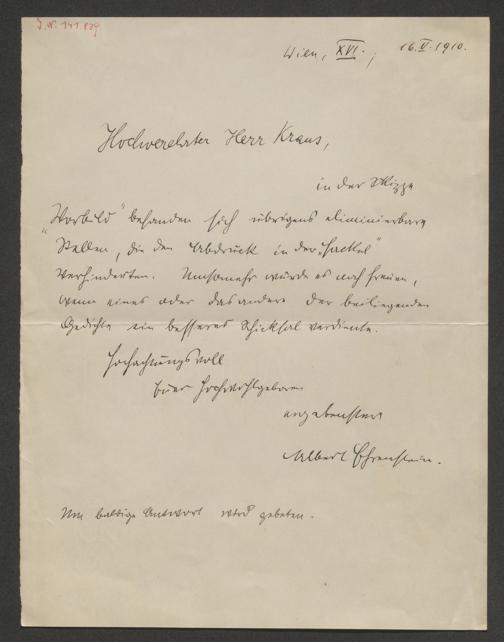 I.N. 141.829
Wien, XVI., 16.V.1910.
Hochverehrter Herr Kraus,
in der Skizze
„Vorbild“ befanden sich übrigens eliminierbare
Stellen, die den Abdruck in der „Fackel“
verhinderten. Umsomehr würde es mich freuen,
wenn eines oder das andere der beiliegenden
Gedichte ein besseres Schicksal verdiente.
Hochachtungsvoll
Euer Hochwohlgeboren
ergebenster
Albert Ehrenstein.
Um baldige Antwort wird gebeten.